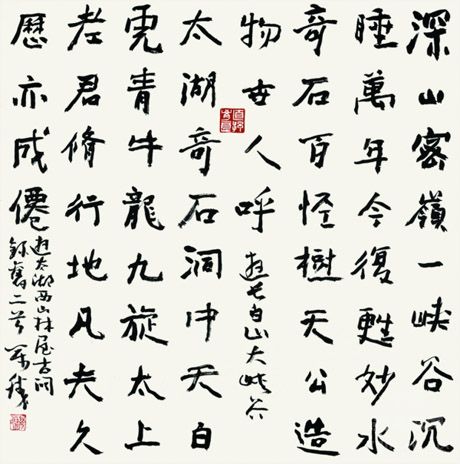 深山密嶺一峽谷沉
睡萬年今復甦妙水
奇石百怪樹天公造
物世人呼
遊长白山大峽谷
太湖奇石洞中天白
虎青牛龍九旋太上
老君脩行地凡夫久
歷亦成僊
遊太湖西山林屋古洞
錄舊二首